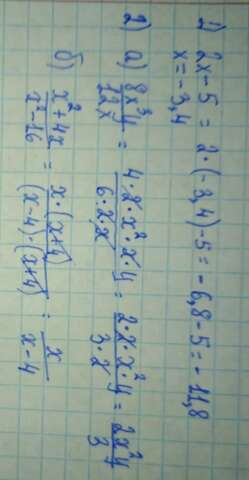 1) 2x - 5 = 2 · (-3,4) - 5 = -6,8 - 5 = -11,8
x = -3,4
2) а) 8x³4 / 12x = 4·2·x²·x·4 / 6·2·x = 2·2·x²·4 / 3·2 = 2x²4 / 3
б) x²+4x / x²-16 = x·(x+4) / (x-4)·(x+4) = x / x-4